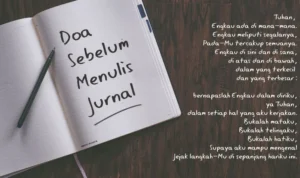 Doa
Sebelum
Menulis
Jurnal
Tuhan,
Engkau ada di mana-mana.
Engkau meliputi segalanya,
Pada-Mu tercakup semuanya.
Engkau di sini dan di sana,
di atas dan di bawah,
dalam yang terkecil
dan yang terbesar.
bernapaslah Engkau dalam diriku,
ya Tuhan,
dalam setiap hal yang aku kerjakan.
Bukalah mataku,
Bukalah telingaku,
Bukalah hatiku,
Supaya aku mampu mengenal
jejak langkah-Mu di sepanjang hariku ini.